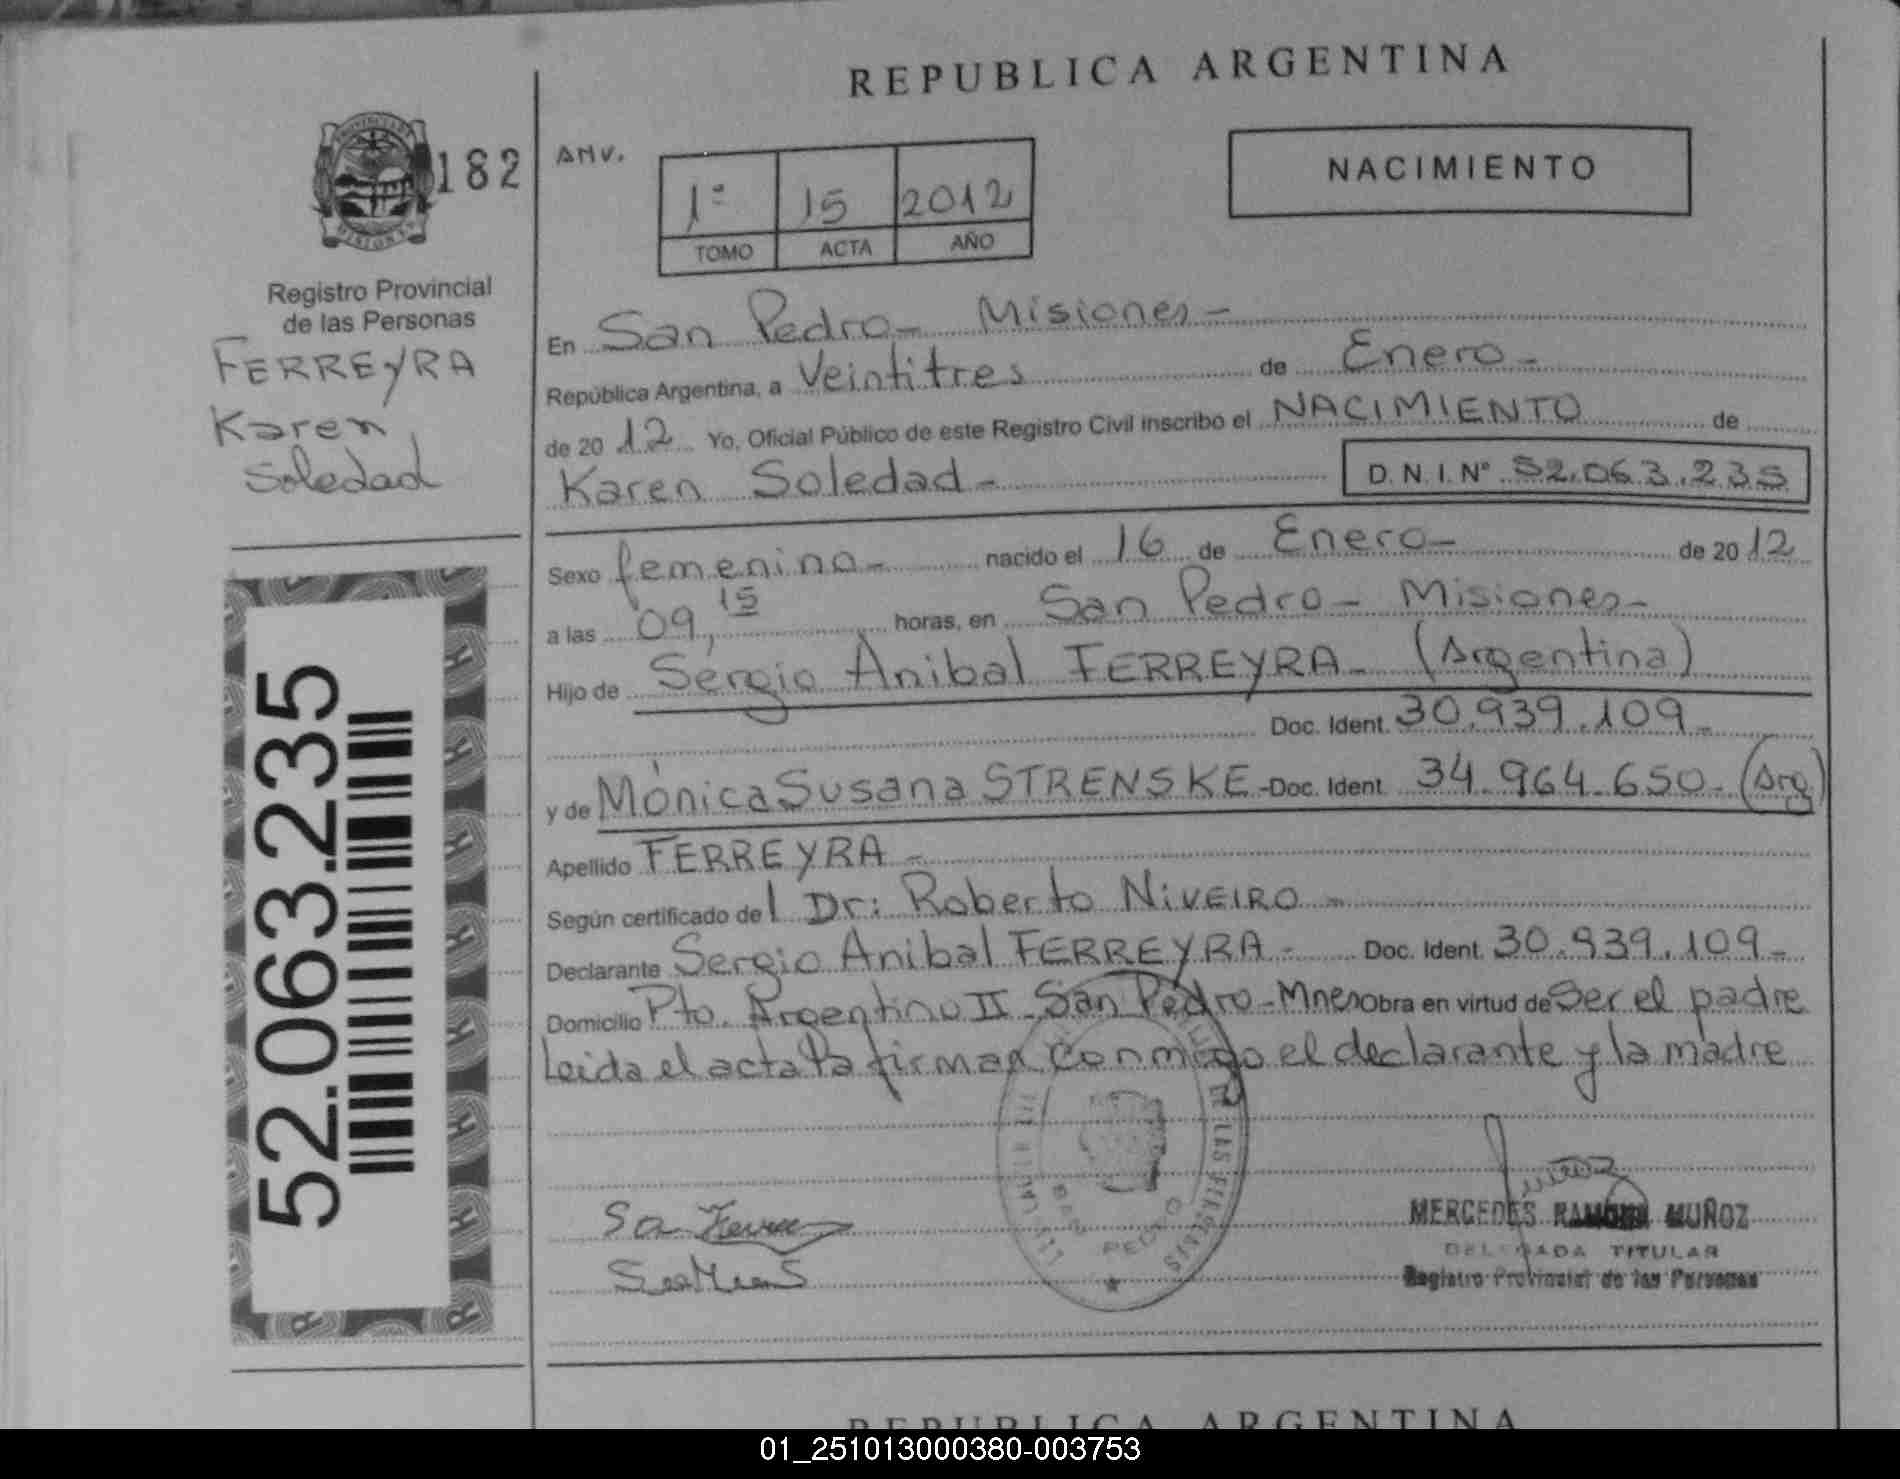 REPUBLICA ARGENTINA
PROVINCIA DE
MISIONES
182
Registro Provincial
de las Personas
FERREYRA
Karen
Soledad
52.063.235
ANV.
1º 15 2012
TOMO ACTA AÑO
NACIMIENTO
En San Pedro - Misiones -
República Argentina, a Veintitres de Enero -
de 2012 Yo, Oficial Público de este Registro Civil inscribo el NACIMIENTO de
Karen Soledad - D.N.I. Nº 52.063.235
Sexo femenino - nacido el 16 de Enero - de 2012
a las 09,15 horas, en San Pedro - Misiones -
Hijo de Sergio Anibal FERREYRA - (Argentina)
Doc. Ident. 30.939.109 -
y de Mónica Susana STRENSKE - Doc. Ident. 34.964.650 - (Arg)
Apellido FERREYRA -
Según certificado del Dr: Roberto NIVEIRO -
Declarante Sergio Anibal FERREYRA - Doc. Ident. 30.939.109 -
Domicilio Pto. Argentino II - San Pedro - Mnes Obra en virtud de Ser el padre
Leida el acta la firman conmigo el declarante y la madre
DE LAS PERSONAS
SAN PEDRO
MERCEDES RAMONA MUÑOZ
DELEGADA TITULAR
Registro Provincial de las Personas
REPUBLICA ARGENTINA
01_251013000380-003753